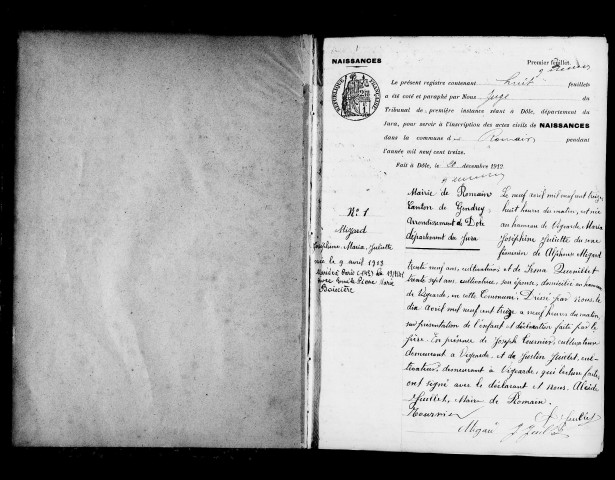 NAISSANCES
Premier feuillet.
RÉPUBLIQUE FRANÇAISE
Le présent registre contenant huit feuillets
a été coté et paraphé par Nous Juge du
Tribunal de première instance séant à Dôle, département du
Jura, pour servir à l'inscription des actes civils de NAISSANCES
dans la commune de Romain pendant
l'année mil neuf cent treize.
Fait à Dôle, le 20 décembre 1912
N° 1
Joséphine Maria Juliette
née le 9 avril 1913
Mairie de Romain
Canton de Gendrey
Arrondissement de Dole
département du Jura
Le neuf avril mil neuf cent treize
huit heures du matin, est née
au hameau de Vigearde, Maria
Joséphine Juliette, du sexe
féminin de Alphonse
trente neuf ans, cultivateur, et de
trente sept ans, cultivatrice, son épouse, domiciliés au hameau
de Vigearde, en cette Commune. Dressé par nous, le
dix avril mil neuf cent treize à neuf heures du matin,
sur présentation de l'enfant et déclaration faite par le
père. En présence de Joseph Cournier, cultivateur
demeurant à Vigearde, et de Justin Juillet, cul-
tivateur, demeurant à Vigearde, qui lecture faite,
ont signé avec le déclarant et Nous. Alcide
Juillet, Maire de Romain.